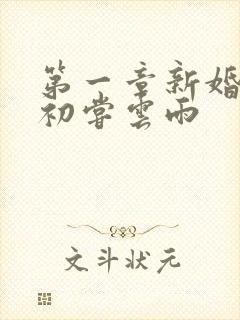 第一章新婚
初嘗雲雨
文斗状元